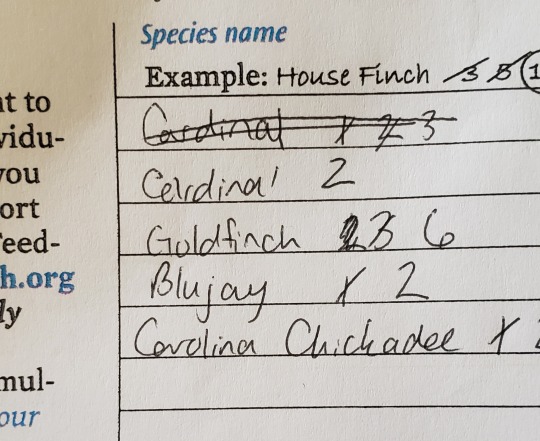 Species name
Example: House Finch 3 8 1
nt to
Cardinal 1 2 3
vidu-
you
Cardinal 2
ort
Feed-
Goldfinch 3 6
h.org
ly
Blujay 1 2
Carolina Chickadee 1
mul-
our